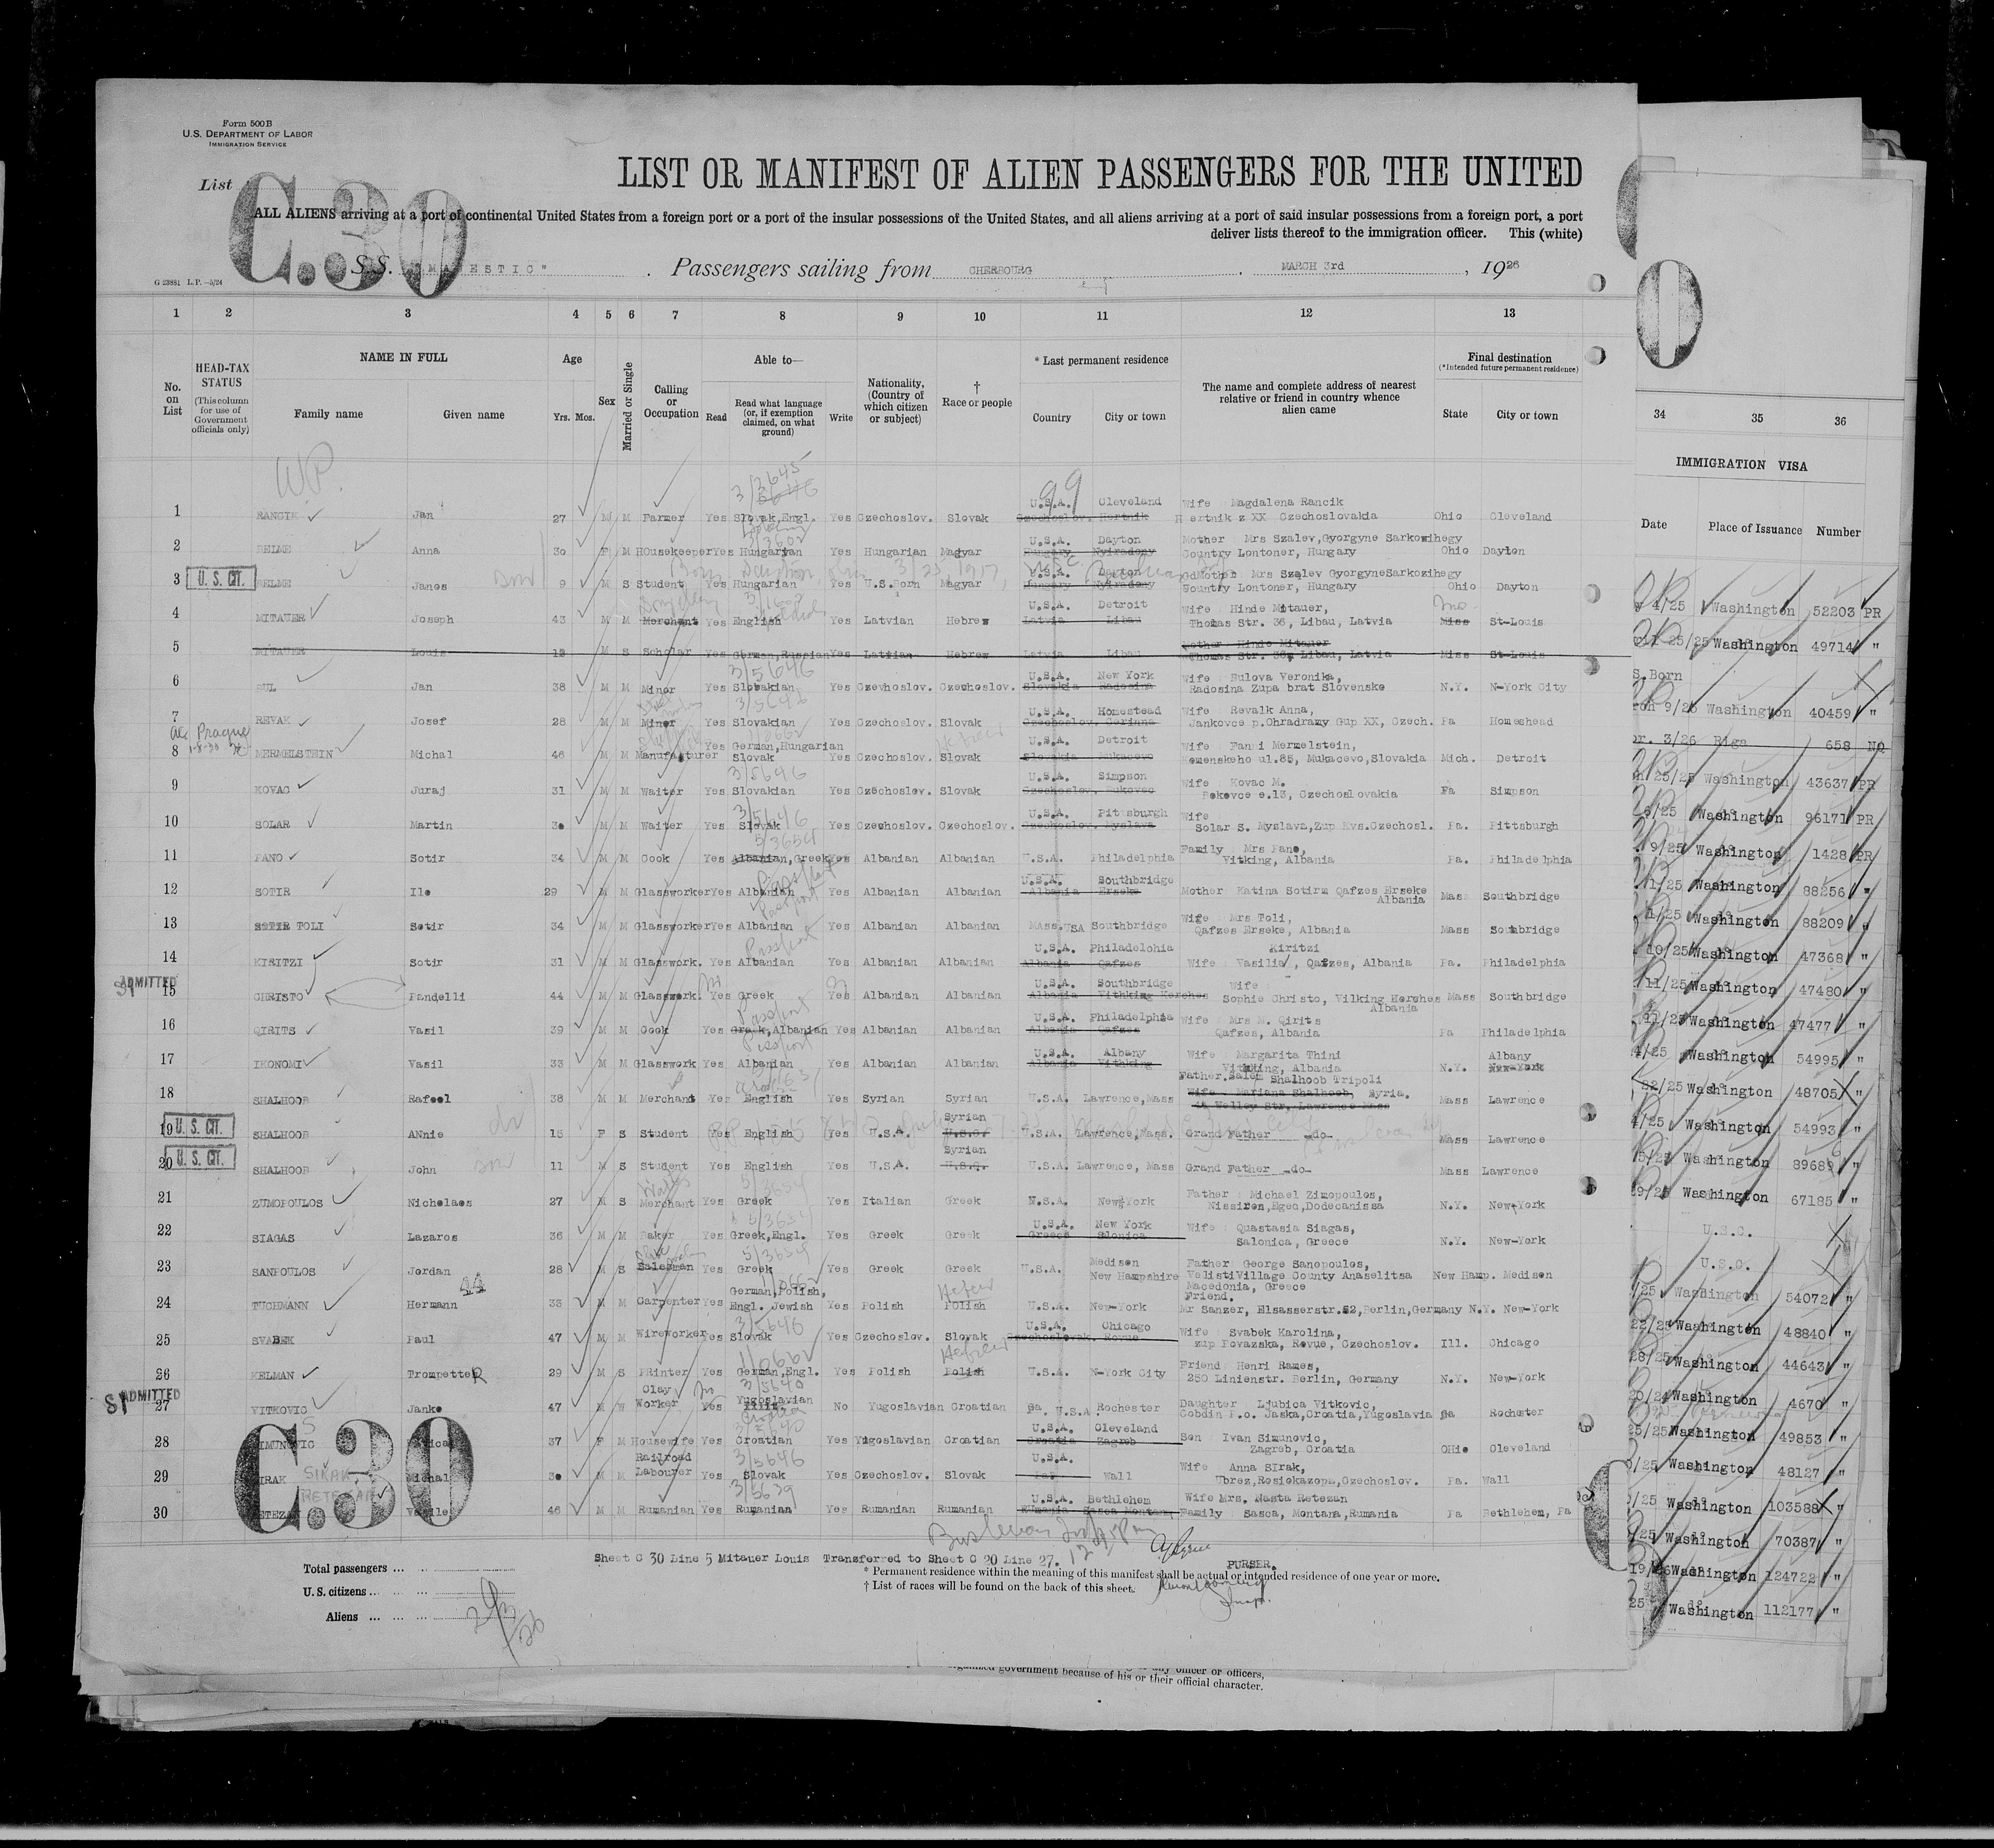 Form 500 B
U.S. DEPARTMENT OF LABOR
IMMIGRATION SERVICE
List
C.30
LIST OR MANIFEST OF ALIEN PASSENGERS FOR THE UNITED
ALL ALIENS arriving at a port of continental United States from a foreign port or a port of the insular possessions of the United States, and all aliens arriving at a port of said insular possessions from a foreign port, a port
deliver lists thereof to the immigration officer. This (white)
S.S. "MAJESTIC" Passengers sailing from CHERBOURG, MARCH 3rd, 1926
G 23881 L.P.—5/24
1 2 3 4 5 6 7 8 9 10 11 12 13
No. on List
HEAD-TAX STATUS (This column for use of Government officials only)
NAME IN FULL
Family name Given name
Age Yrs. Mos.
Sex
Married or Single
Calling or Occupation
Able to— Read Read what language (or, if exemption claimed, on what ground) Write
Nationality, (Country of which citizen or subject)
† Race or people
* Last permanent residence Country City or town
The name and complete address of nearest relative or friend in country whence alien came
Final destination (*Intended future permanent residence) State City or town
34 35 36
IMMIGRATION VISA
Date Place of Issuance Number
W.P.
99
1 RANCIK Jan 27 M M Farmer Yes Slovak,Engl. Yes Czechoslov. Slovak U.S.A. Cleveland Czechoslov. Hertnik Wife : Magdalena Rancik Hertnik z XX Czechoslovakia Ohio Cleveland
2 BELME Anna 30 F M HOusekeeper Yes Hungarian Yes Hungarian Magyar U.S.A. Dayton Hungary Nyiradony Mother : Mrs Szalev,Gyorgyne Sarkowihegy Country Lontoner, Hungary Ohio Dayton
3 U.S. CIT. BELME Janos son 9 M S Student Yes Hungarian Yes U.S.Born Magyar U.S.A. Dayton Hungary Nyiradony GdMother: Mrs Szalev GyorgyneSarkozihegy Country Lontoner, Hungary Ohio Dayton
4 MITAUER Joseph 43 M M Merchant Yes English Yes Latvian Hebrew U.S.A. Detroit Latvia Libau Wife : Hinde Mitauer, Thomas Str. 36, Libau, Latvia Miss Mo. St-Louis
5 MITAUER Louis 18 M S Scholar Yes German,Russian Yes Latvian Hebrew Latvia Libau Mother Hinde Mitauer Thomas Str. 36, Libau, Latvia Miss St-Louis
6 SUL Jan 38 M M Miner Yes Slovakian Yes Czevhoslov. Czechoslov. U.S.A. New York Slovakia Radosina Wife : Sulova Veronika, Radosina Zupa brat Slovenske N.Y. N-York City
7 REVAK Josef 28 M M Miner Yes Slovakian Yes Czechoslov. Slovak U.S.A. Homestead Wife : Revalk Anna, Jankovce p.Ohradramy Gup XX, Czech. Pa Homeshead
8 MERMELSTEIN Michal 46 M M Manufacturer Yes German,Hungarian Slovak Yes Czechoslov. Slovak U.S.A. Detroit Slovakia Mukacevo Wife : Fanni Mermelstein, Komenskeho ul.85, Mukacevo,Slovakia Mich. Detroit
9 KOVAC Juraj 31 M M Waiter Yes Slovakian Yes Czechoslov. Slovak U.S.A. Simpson Wife : Kovac M. Bokovce e.13, Czechoslovakia Pa Simpson
10 SOLAR Martin 30 M M Waiter Yes Slovak Yes Czechoslov. Czechoslov. U.S.A. Pittsburgh Czechoslov, Myslava Wife Solar S. Myslava,Zup Kvs.Czechosl. Pa. Pittsburgh
11 PANO Sotir 34 M M Cook Yes Albanian,Greek Yes Albanian Albanian U.S.A. Philadelphia Family : Mrs Pano, Vitking, Albania Pa. Philadelphia
12 SOTIR Ilo 29 M M Glassworker Yes Albanian Yes Albanian Albanian U.S.A. Southbridge Albania Erseke Mother Katina Sotirm Qafzes Erseke Albania Mass Southbridge
13 SOTIR TOLI Sotir 34 M M Glassworker Yes Albanian Yes Albanian Albanian Mass.USA Southbridge Wife : Mrs Toli, Qafzes Erseke, Albania Mass Southbridge
14 KIRITZI Sotir 31 M M Glasswork. Yes Albanian Yes Albanian Albanian U.S.A. Philadelohia Albania Qafzes Wife : Vasilia Kiritzi, Qafzes, Albania Pa. Philadelphia
ADMITTED 15 CHRISTO Pandelli 44 M M Glasswork. Yes Greek Yes Albanian Albanian U.S.A. Southbridge Albania Vithking Kerches Wife : Sophie Christo, Vilking Kerches Albania Mass Southbridge
16 QIRITS Vasil 39 M M Cook Yes Greek,Albanian Yes Albanian Albanian U.S.A. Philadelphia Albania Qafzes Wife : Mrs N. Qirits Qafzes, Albania Pa Philadelphia
17 IKONOMI Vasil 33 M M Glasswork Yes Albanian Yes Albanian Albanian U.S.A. Albany Albania Vithking Wife : Margarita Thini Vithking, Albania N.Y. Albany New-York
18 SHALHOOB Rafeel 38 M M Merchant Yes English Yes Syrian Syrian U.S.A. Lawrence,Mass Father.Salem Shalhoob Tripoli Syria. Wife - Mariana Shalhoob, Lawrence Mass Mass Lawrence
19 U.S. CIT. SHALHOOB ANnie 15 F S Student Yes English Yes U.S.A. Syrian U.S.A. Lawrence,Mass. Grand Father -do- Mass Lawrence
20 U.S. CIT. SHALHOOB John son 11 M S Student Yes English Yes U.S.A. Syrian U.S.A. Lawrence, Mass Grand Father -do- Mass Lawrence
21 ZUMOPOULOS Nicholaos 27 M S Merchant Yes Greek Yes Italian Greek U.S.A. New-York Father : Michael Zimopoulos, Nissiron,Egeo,Dodecanissa N.Y. New-York
22 SIAGAS Lazaros 36 M M Baker Yes Greek,Engl. Yes Greek Greek U.S.A. New York Greece Slonica Wife : Quastasia Siagas, Salonica, Greece N.Y. New-York
23 SANPOULOS Jordan 28 M S Salesman Yes Greek Yes Greek Greek U.S.A. Medison New Hampshire Father: George Sanopoulos, VolistiVillage County Anaselitsa Macedonia, Greece New Hamp. Medison
24 TUCHMANN Hermann 33 M M Carpenter Yes German,Polish, Engl. Jewish Yes Polish Polish Hebrew U.S.A. New-York Friend. Mr Sanzer, Elsasserstr.52,Berlin,Germany N.Y. New-York
25 SVABEK Paul 47 M M Wireworker Yes Slovak Yes Czechoslov. Slovak U.S.A. Chicago Czechoslovak. Rovue Wife : Svabek Karolina, zup Povazska, Rovue, Czechoslov. Ill. Chicago
26 KELMAN TrompetteR 29 M S PRinter Yes German,Engl. Yes Polish Polish Hebrew U.S.A. N-York City Friend : Henri Rames, 250 Linienstr. Berlin, Germany N.Y. New-York
ADMITTED 27 VITKOVIC Janko 47 M W Clay Worker Yes Yugoslavian No Yugoslavian Croatian Pa. U.S.A. Rochester Daughter : Ljubica Vitkovic, Gobdin P.o. Jaska,Croatia,Yugoslavia Pa Rochster
28 SIMUNOVIC 37 F M Housewife Yes Croatian Yes Yugoslavian Croatian U.S.A. Cleveland Croatia Zagreb Son : Ivan Simunovic, Zagreb, Croatia OHio Cleveland
29 SIRAK Michal 30 M M Railroad Labourer Yes Slovak Yes Czechoslov. Slovak U.S.A. Wall Wife : Anna SIrak, Czechoslov. Pa. Wall
30 RETEZAN Vasile 46 M M Rumanian Yes Rumanian Yes Rumanian Rumanian U.S.A. Bethlehem Rumania Sasca Montana, Wife Mrs. Nasta Retezan Family : Sasca, Montana,Rumania Pa Bethlehem, Pa
4/25 Washington 52203 PR
25/25 Washington 49714 "
S.Born
9/25 Washington 40459 "
3/26 Riga 658 NQ
25/25 Washington 43637 PR
6/25 Washington 96171 PR
9/25 Washington 1428 PR
1/25 Washington 88256 "
1/25 Washington 88209 "
10/25 Washington 47368 "
11/25 Washington 47480 "
11/25 Washington 47477 "
4/25 Washington 54995 "
22/25 Washington 48705 "
4/25 Washington 54993 "
5/25 Washington 89689 "
9/25 Washington 67185 "
U.S.C.
U.S.C.
/25 Washington 54072 "
22/25 Washington 48840 "
28/25 Washington 44643 "
20/24 Washington 4670 "
25/25 Washington 49853 "
/25 Washington 48127 "
/25 Washington 103588 "
/25 Washington 70387 "
19/26 Washington 124722 "
25 Washington 112177 "
Sheet C 30 Line 5 Mitauer Louis Transferred to Sheet C 20 Line 27.
PURSER.
* Permanent residence within the meaning of this manifest shall be actual or intended residence of one year or more.
† List of races will be found on the back of this sheet.
Total passengers
U.S. citizens
Aliens
C.30
organized government because of his or their official character.